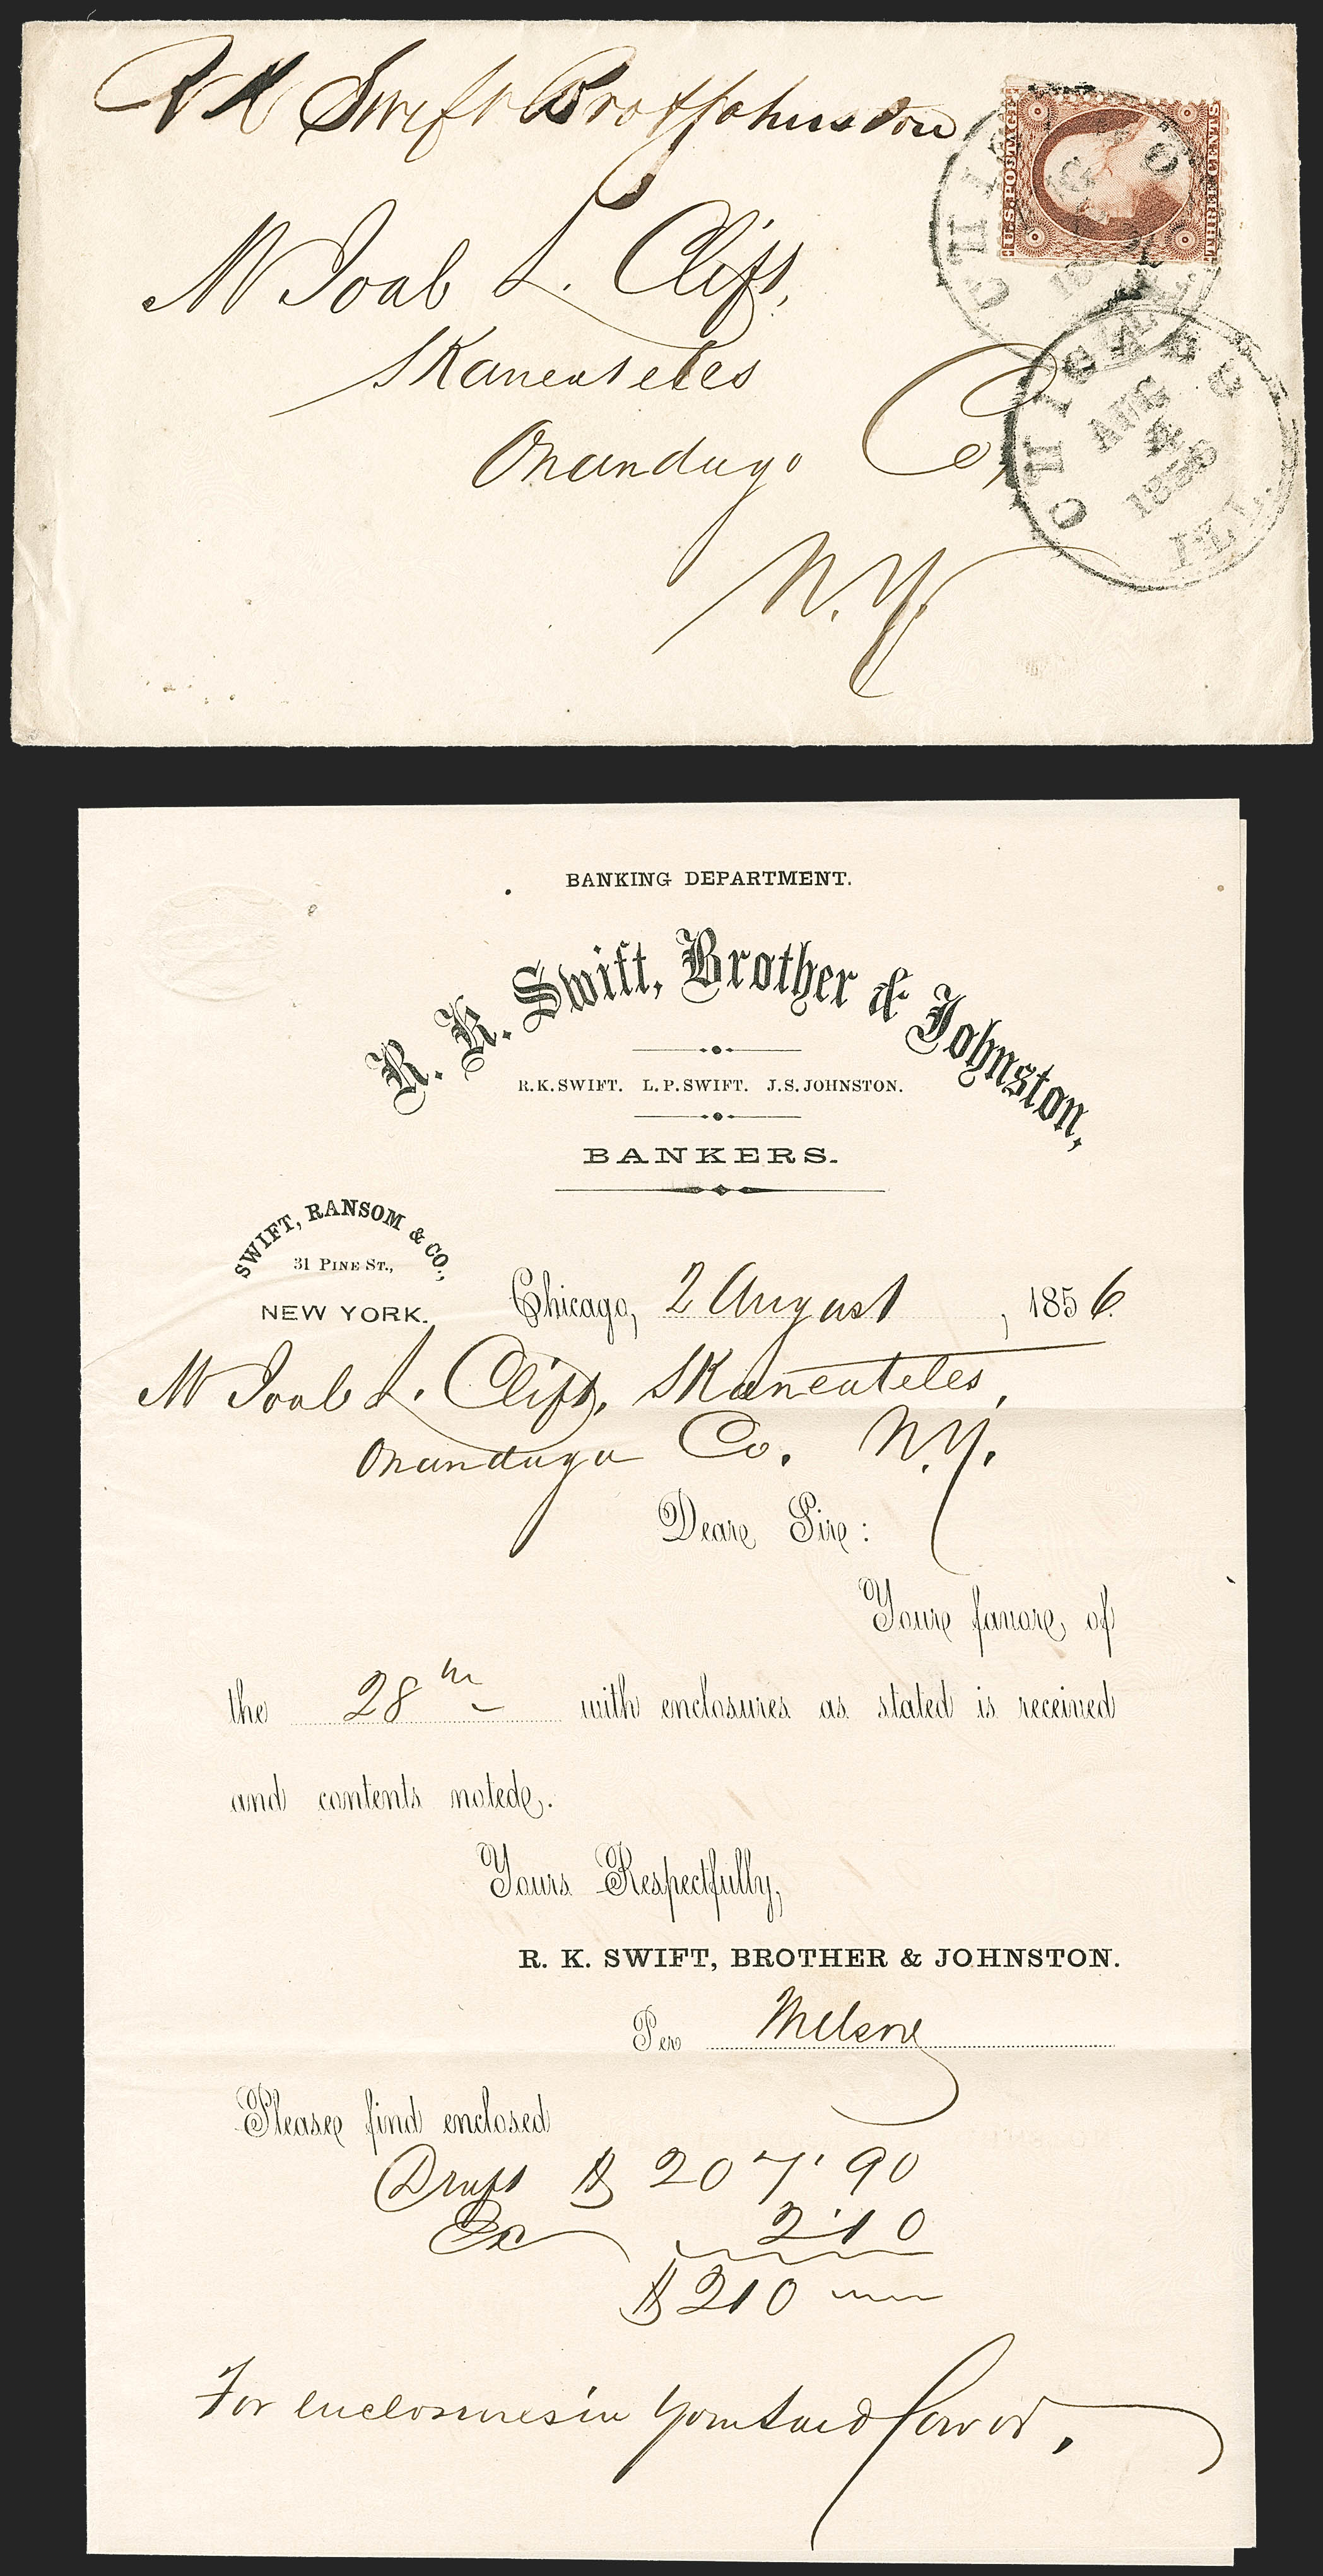 R K Swift Brot & Johnston
U.S. POSTAGE
THREE CENTS
CHICAGO
ILL.
Mr Joab L. Clift,
Skaneateles
Onandaga Co,
N.Y.
CHICAGO
AUG
4
1856
ILL.
BANKING DEPARTMENT.
R. K. Swift, Brother & Johnston,
R. K. SWIFT. L. P. SWIFT. J. S. JOHNSTON.
BANKERS.
SWIFT, RANSOM & CO.,
31 PINE ST.,
NEW YORK.
Chicago, 2 August, 1856.
Mr Joab L. Clift, Skaneateles,
Onandaga Co. N.Y.
Dear Sir:
Your favor, of
the 28th with enclosures as stated is received
and contents noted.
Yours Respectfully,
R. K. SWIFT, BROTHER & JOHNSTON.
Per
Please find enclosed
Draft $ 207.90
Ex 2.10
$ 210
For enclosures in your said favor,